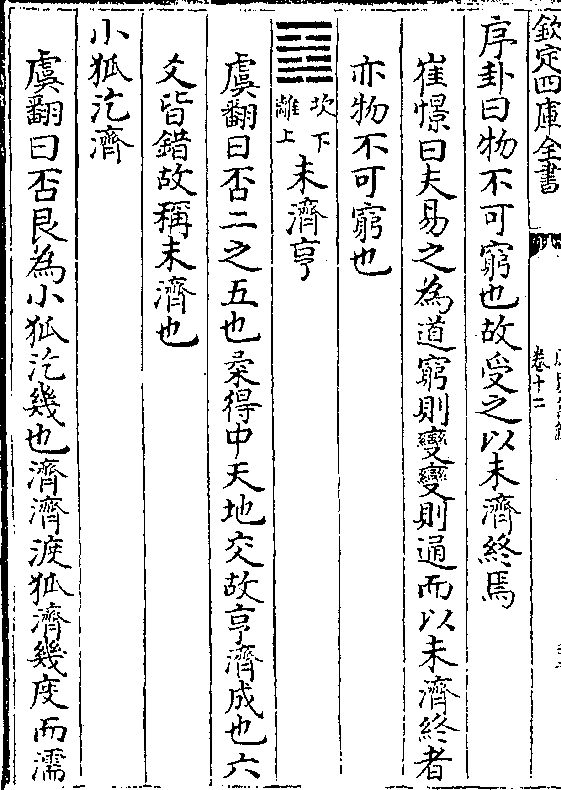 欽定四庫全書
卷十二
序卦曰物不可窮也故受之以未濟終焉
崔憬曰夫易之為道窮則變變則通而以未濟終者
亦物不可窮也
坎下
離上
未濟亨
虞翻曰否二之五也柔得中天地交故亨濟成也六
爻皆錯故稱未濟也
小狐汔濟
虞翻曰否艮為小狐汔幾也濟濟渡狐濟幾度而濡